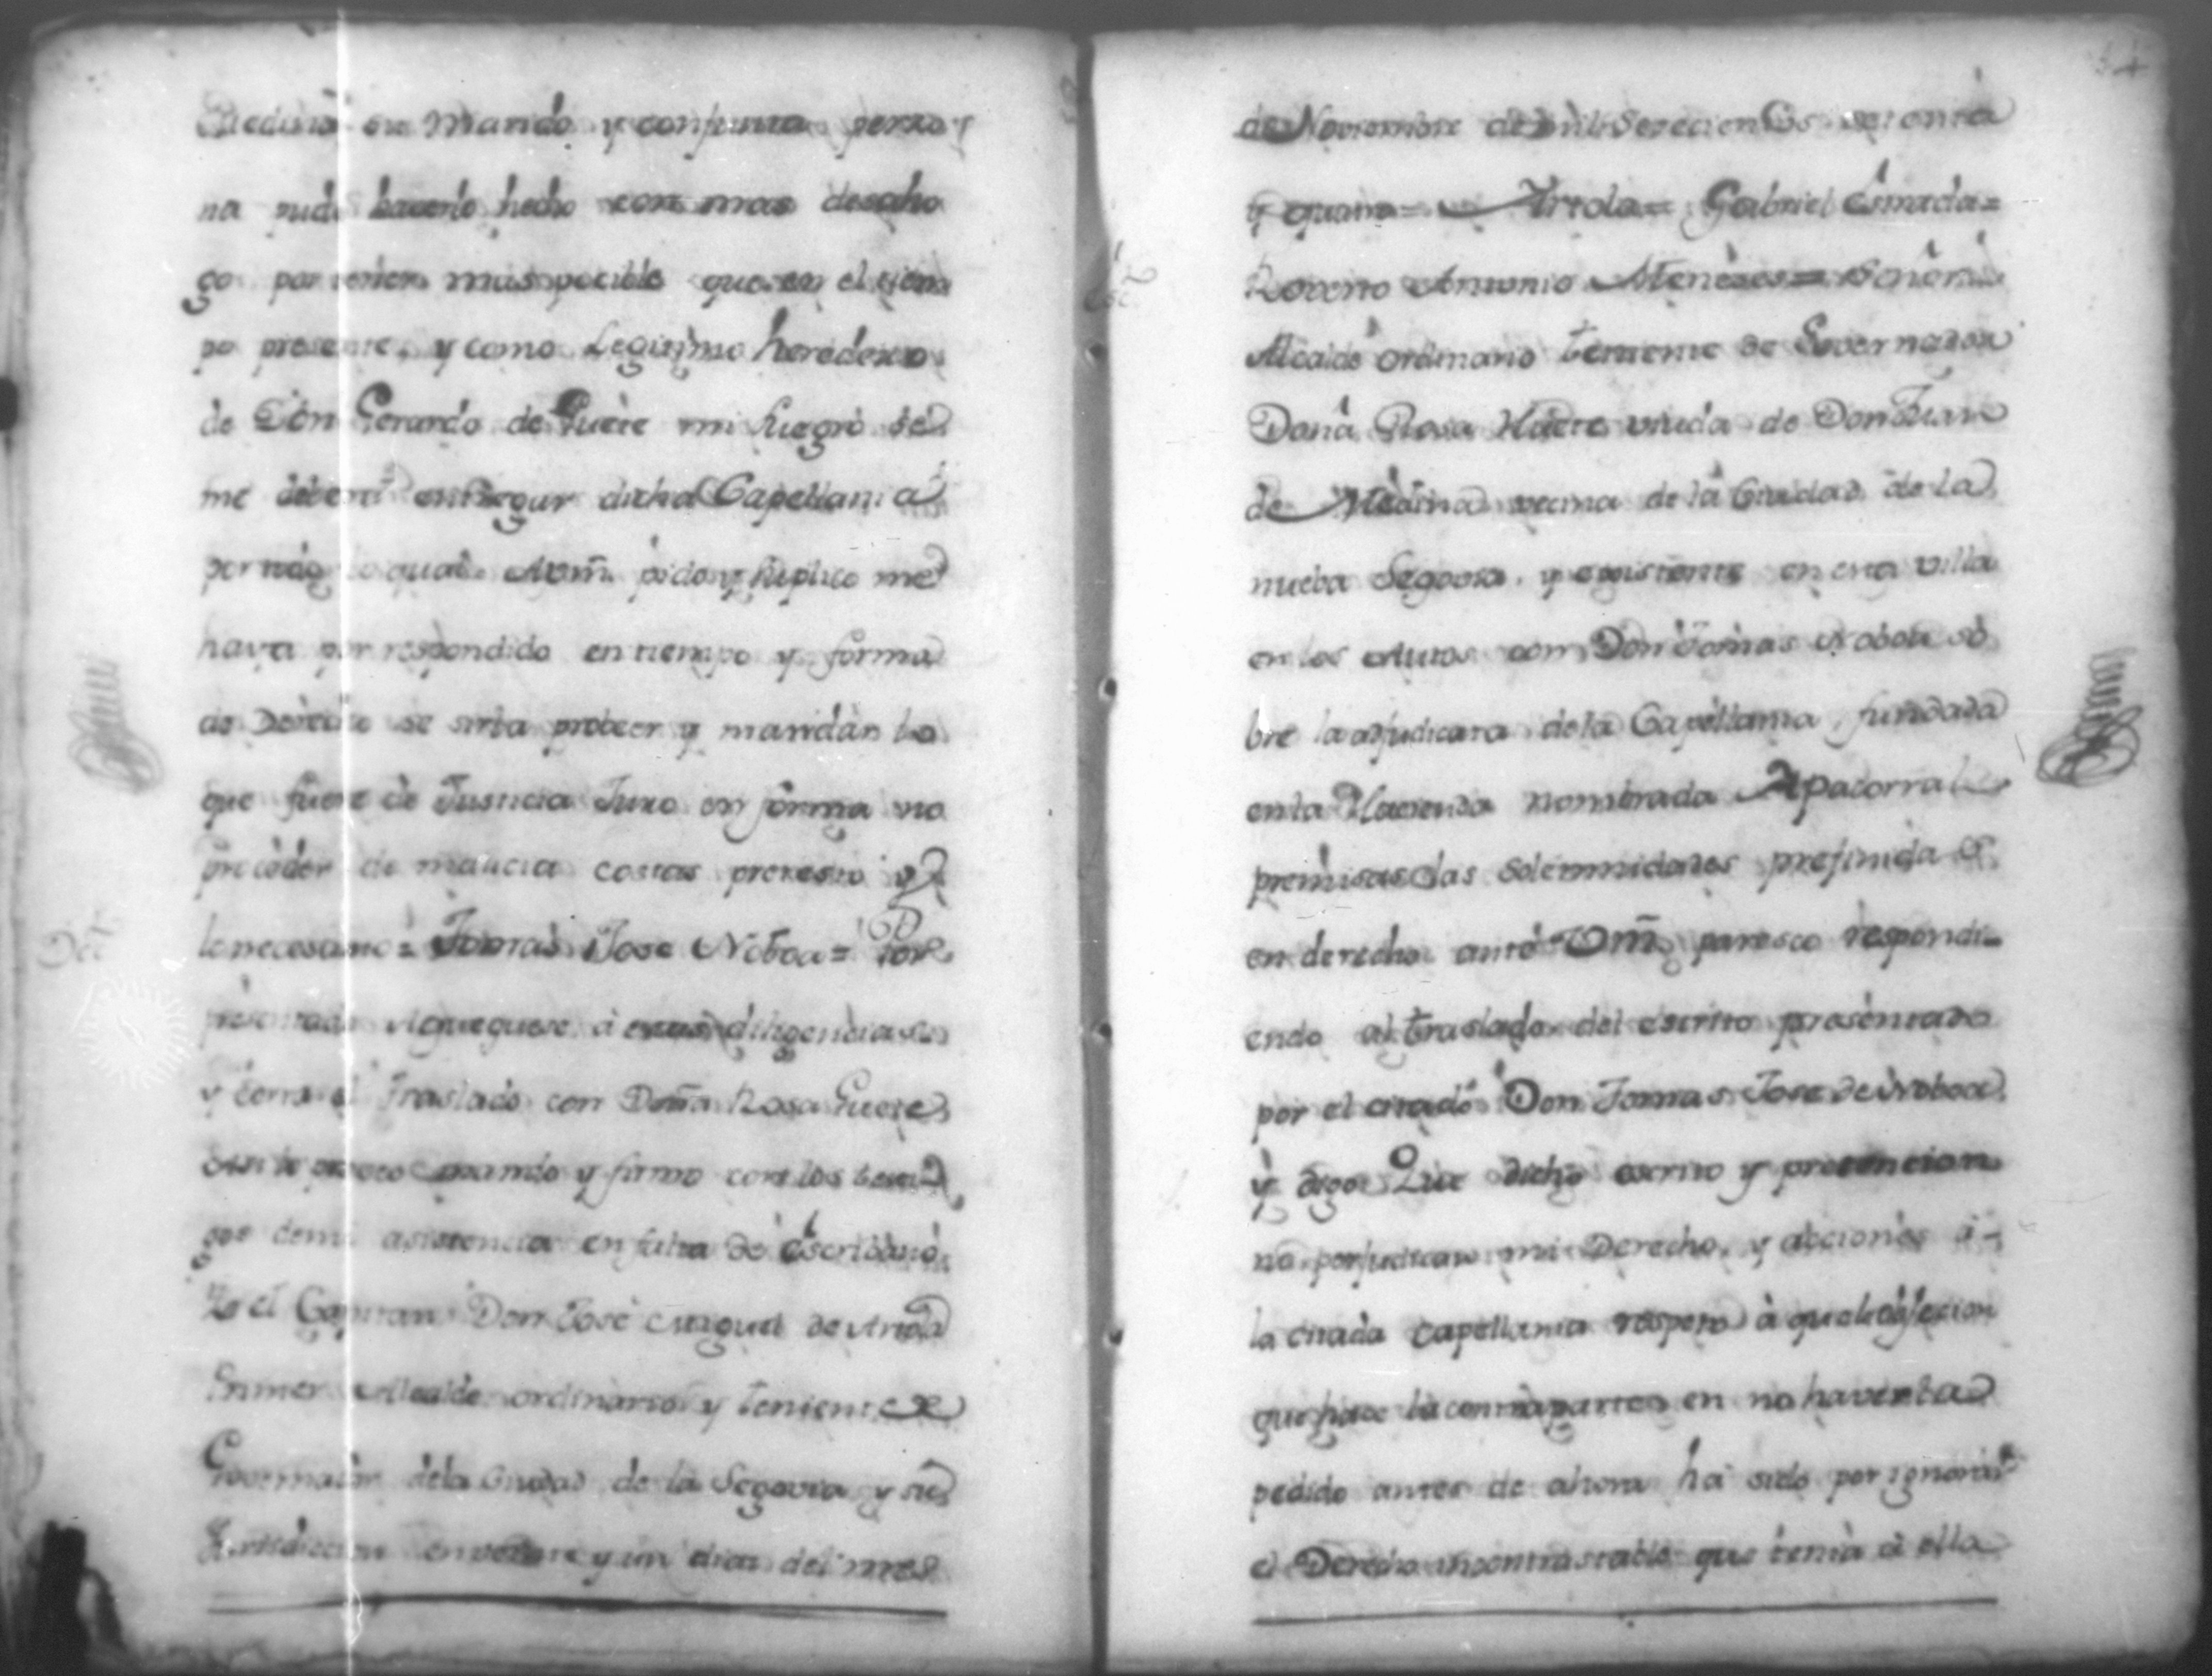 Medina su Marido y conjunta perso
na pudo haverlo hecho con mas desaho
go por ser mas pocible que en el tiem
po presente, y como Legitimo heredero
de Don Gerardo de Huete mi Suegro se
me debera entregar dicha Capellania
por todo lo qual A Vm. pido y suplico me
haya por respondido en tiempo y forma
de Derecho se sirba probeer y mandar lo
que fuere de Justicia Juro en forma no
proceder de malicia costas protesto y
lo necesario = Tomas Jose Noboa = Por
Dec.to
presentado Agreguese á estas diligencias
y corra el Traslado con Doña Rosa Huete
Asi lo mando y firmo con los testi
gos de mi asistencia en falta de Escribano
Yo el Capitan Don Jose Miguel de
Primer Alcalde ordinario y teniente de
Governador de la Ciudad de la Segovia y su
Jurisdiccion en veinte y un dias del mes
de Noviembre de mil Setecientos setenta
y quatro = Gabriel Esmada =
Antonio Meneses = Señor
Esc.to
Alcalde ordinario teniente de Governador
Doña Rosa Huete viuda de Don Juan
de Medina vecina de la Ciudad de la
nueba Segovia y existente en esta villa
en los Autos con Don Tomas Noboa so
bre la de la Capellania fundada
en la Hacienda nombrada Apacorral
premisas las Solemnidades prefinidas
en derecho ante Vm. paresco respondi-
endo al traslado del escrito presentado
por el citado Don Tomas Jose de Noboa
y digo Que dicho escrito y pretencion
no perjudican mi Derecho, y acciones á
la citada capellania respeto à que la objecion
que hace la contraparte en no haverla
pedido antes de ahora ha sido por ignorar
el Derecho incontrastable que tenia á ella